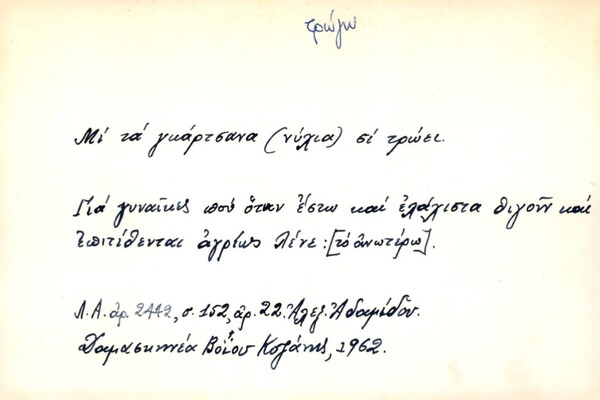 τρώγω
Μί τά γκάρτσανα (νύχια) σί τρώει.
Γιά γυναῖκες πού ὅταν ἔστω καί ἐλάχιστα θιγοῦν καί
ἐπιτίθενται ἀγρίως λένε: [τό ἀνωτέρω].
Λ.Α. ἀρ. 2442, σ. 152, ἀρ. 22. Ἀλεξ. Ἀδαμίδου.
Δαμασκηνέα Βοΐου Κοζάνης, 1962.